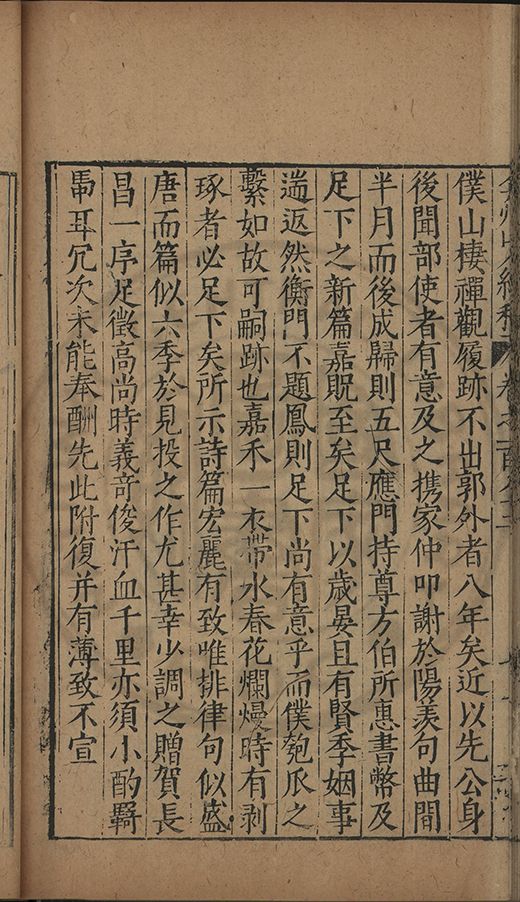 僕山棲禪觀履跡不出郭外者八年矣近以先公身
後聞部使者有意及之携家仲叩謝於陽羨句曲間
半月而後成歸則五尺應門持尊方伯所惠書幣及
足下之新篇嘉貺至矣足下以歲晏且有賢季姻事
遄返然衡門不題鳳則足下尚有意乎而僕匏瓜之
繫如故可嗣跡也嘉禾一衣帶水春花爛熳時有剥
琢者必足下矣所示詩篇宏麗有致唯排律句似盛
唐而篇似六季於見投之作尤甚幸少調之贈賀長
昌一序足徵高尚時義竒俊汗血千里亦須小酌羇
馽耳冗次未能奉酬先此附復并有薄致不宣